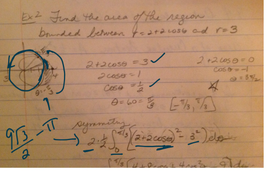 Ex 2 Find the area of the region
bounded between r=2+2cosθ and r=3
2+2cosθ = 3
2+2cosθ=0
2cosθ=1
cosθ=-1
cosθ=1/2
θ=60=π/3 [-π/3, π/3]
9√3/2 - π
symmetry
2·1/2 ∫₀^π/3 (2+2cosθ)² - 3² dθ